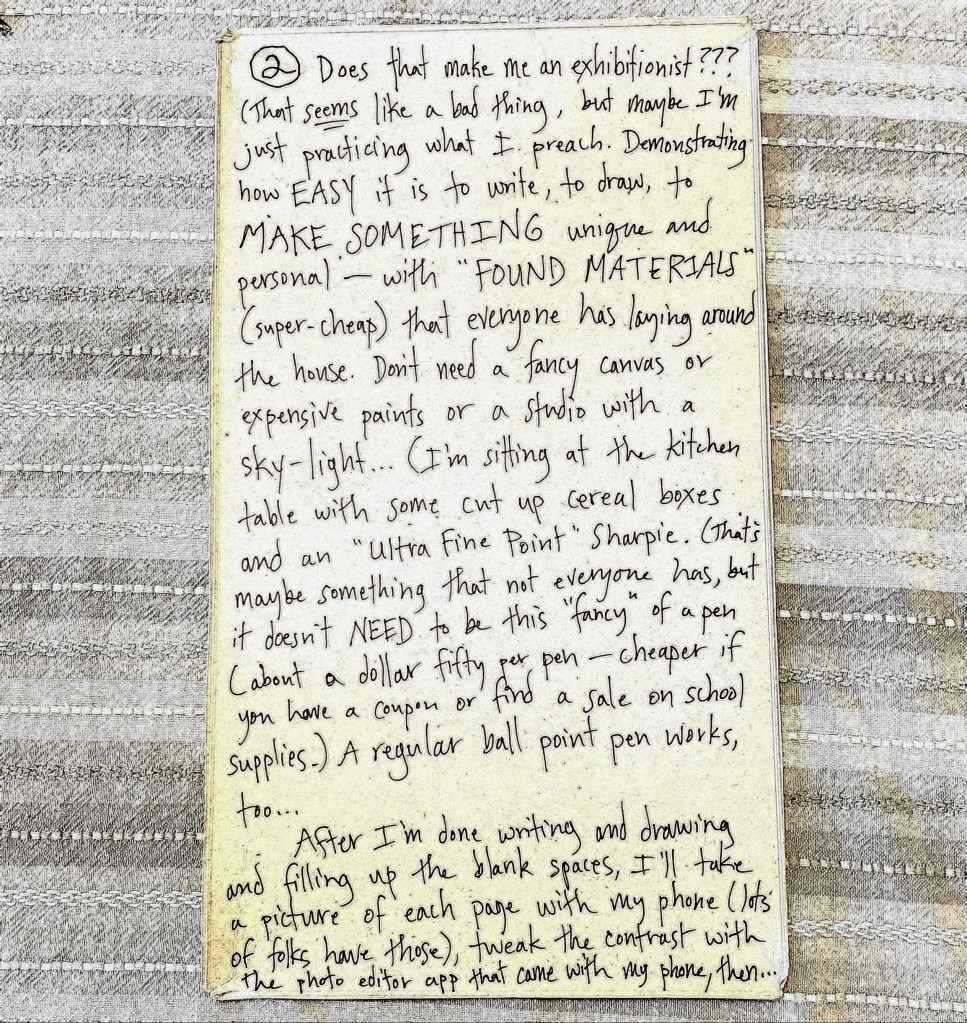 ② Does that make me an exhibitionist???
(That seems like a bad thing, but maybe I'm
just practicing what I preach. Demonstrating
how EASY it is to write, to draw, to
MAKE SOMETHING unique and
personal — with "FOUND MATERIALS"
(super-cheap) that everyone has laying around
the house. Don't need a fancy canvas or
expensive paints or a studio with a
sky-light... (I'm sitting at the kitchen
table with some cut up cereal boxes
and an "Ultra Fine Point" Sharpie. (That's
maybe something that not everyone has, but
it doesn't NEED to be this "fancy" of a pen
(about a dollar fifty per pen — cheaper if
you have a coupon or find a sale on school
supplies.) A regular ball point pen works,
too...
After I'm done writing and drawing
and filling up the blank spaces, I'll take
a picture of each page with my phone (lots
of folks have those), tweak the contrast with
the photo editor app that came with my phone, then...